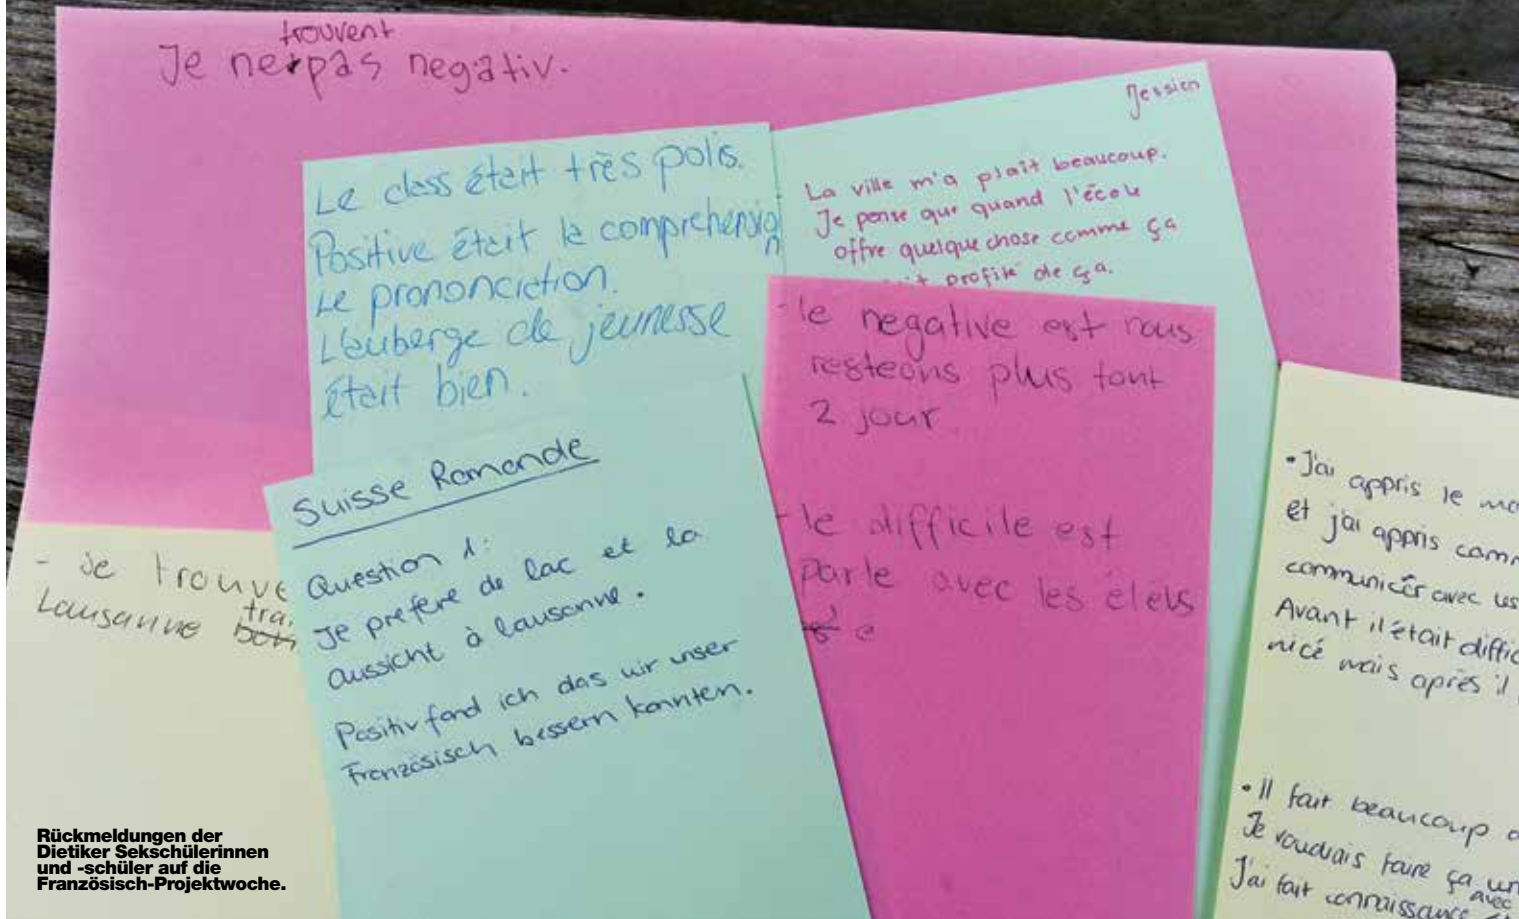 trouvent
Je ne pas negativ.
Jessien
Le class était très polis.
Positive était le comprehension
Le prononciation.
L'auberge de jeunesse
était bien.
La ville m'a plaît beaucoup.
Je pense que quand l'école
offre quelque chose comme ça
profité de ça.
- le negative est nous
resteons plus tant
2 jour.
- le difficile est
parle avec les élèls
e
Suisse Romande
Question 1:
Je prefère de lac et la
aussicht à lausanne.
Positiv fand ich das wir unser
Französisch bessern konnten.
- Je trouve
Lausanne
tra
• J'ai appris le
et j'ai appris comm
communicér avec les
Avant il était diffic
nicé mais après il
• Il fait beaucoup
Je voudrais faire ça un
avec
J'ai fait connaissance
Rückmeldungen der
Dietiker Sekschülerinnen
und -schüler auf die
Französisch-Projektwoche.